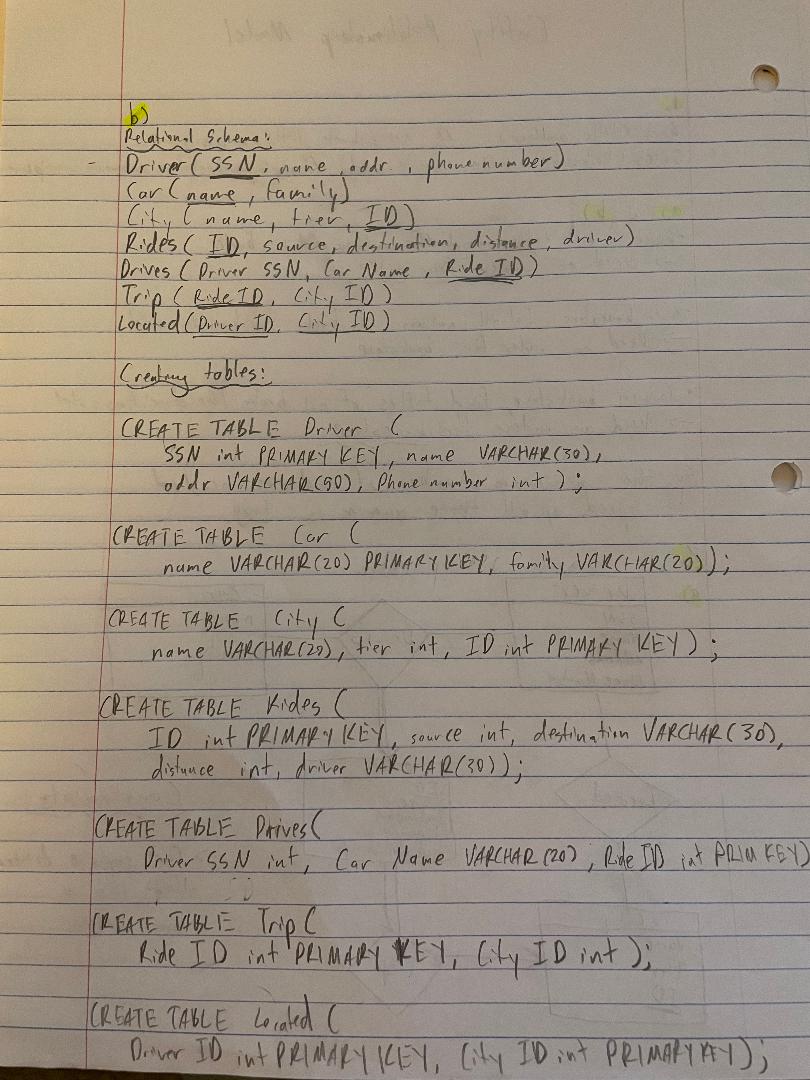 b)
Relational Schema:
Driver( SSN, name, addr. , phone number)
Car ( name, family)
City ( name, tier, ID)
Rides( ID, source, destination, distance, driver)
Drives ( Driver SSN, Car Name, Ride ID)
Trip ( Ride ID, City ID)
Located( Driver ID, City ID)
Creating tables:
CREATE TABLE Driver (
SSN int PRIMARY KEY, name VARCHAR(30),
addr VARCHAR(50), Phone number int );
CREATE TABLE Car (
name VARCHAR(20) PRIMARY KEY, family VARCHAR(20));
CREATE TABLE City (
name VARCHAR(20), tier int, ID int PRIMARY KEY) ;
CREATE TABLE Rides (
ID int PRIMARY KEY, source int, destination VARCHAR(30),
distance int, driver VARCHAR(30));
CREATE TABLE Drives(
Driver SSN int, Car Name VARCHAR(20), Ride ID int PRIM KEY)
CREATE TABLE Trip (
Ride ID int PRIMARY KEY, City ID int );
CREATE TABLE Located (
Driver ID int PRIMARY KEY, City ID int PRIMARY KEY);